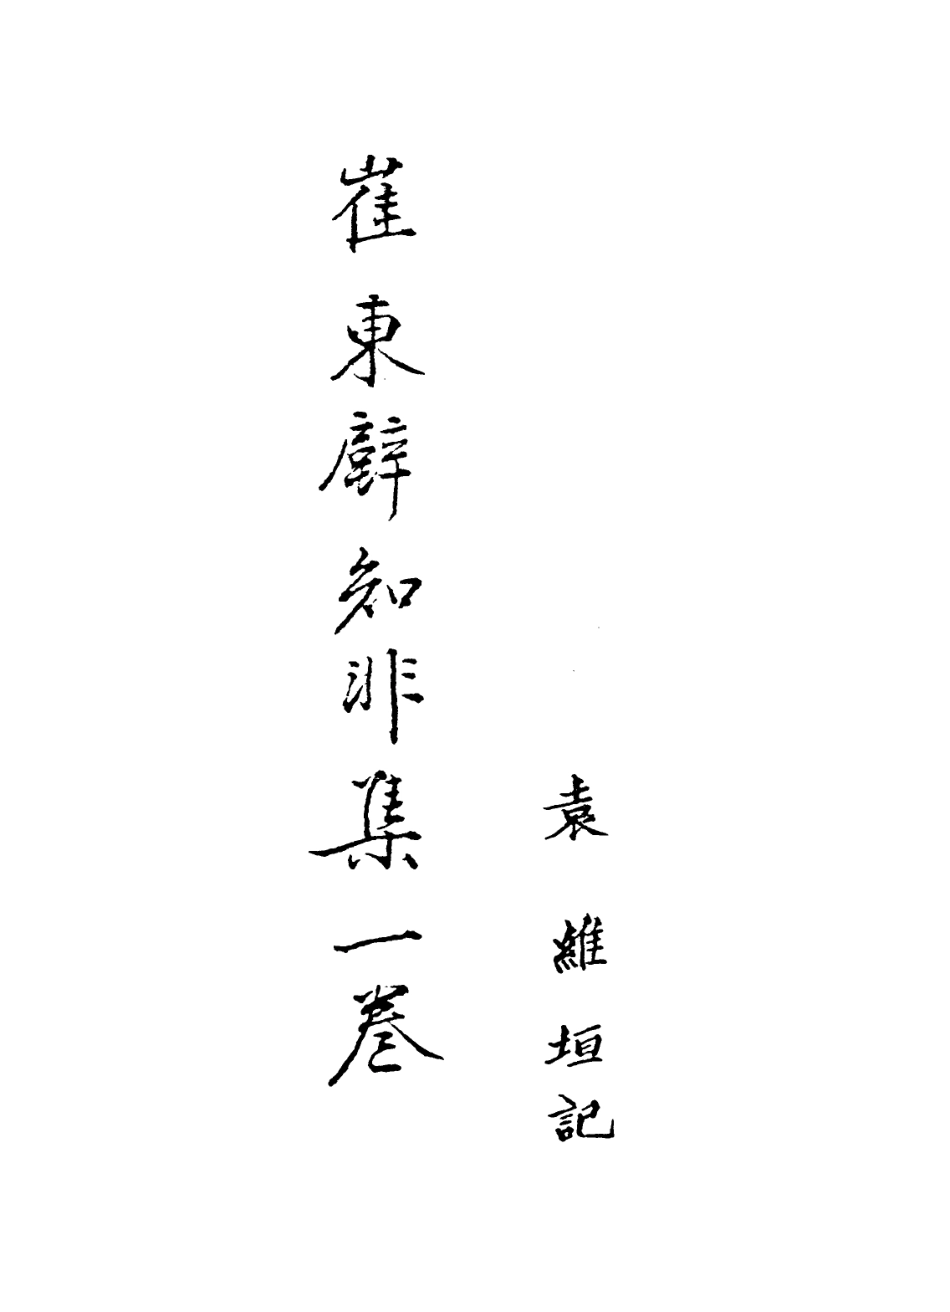 崔東壁知非集一卷
袁維垣記